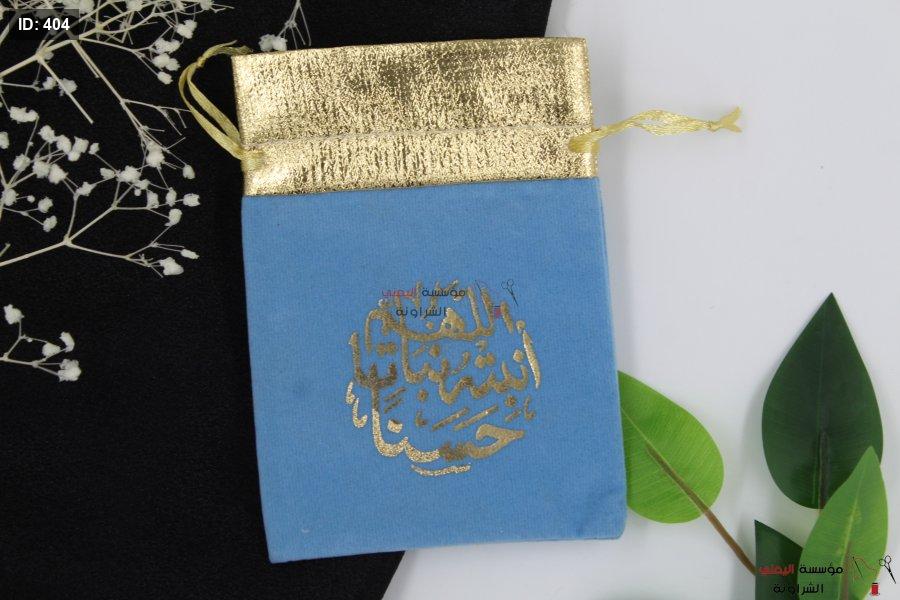 ID: 404
مؤسسة اليمني
الشراونة
اللهم
أنبته نباتا
حسنا
مؤسسة اليمني
الشراونة